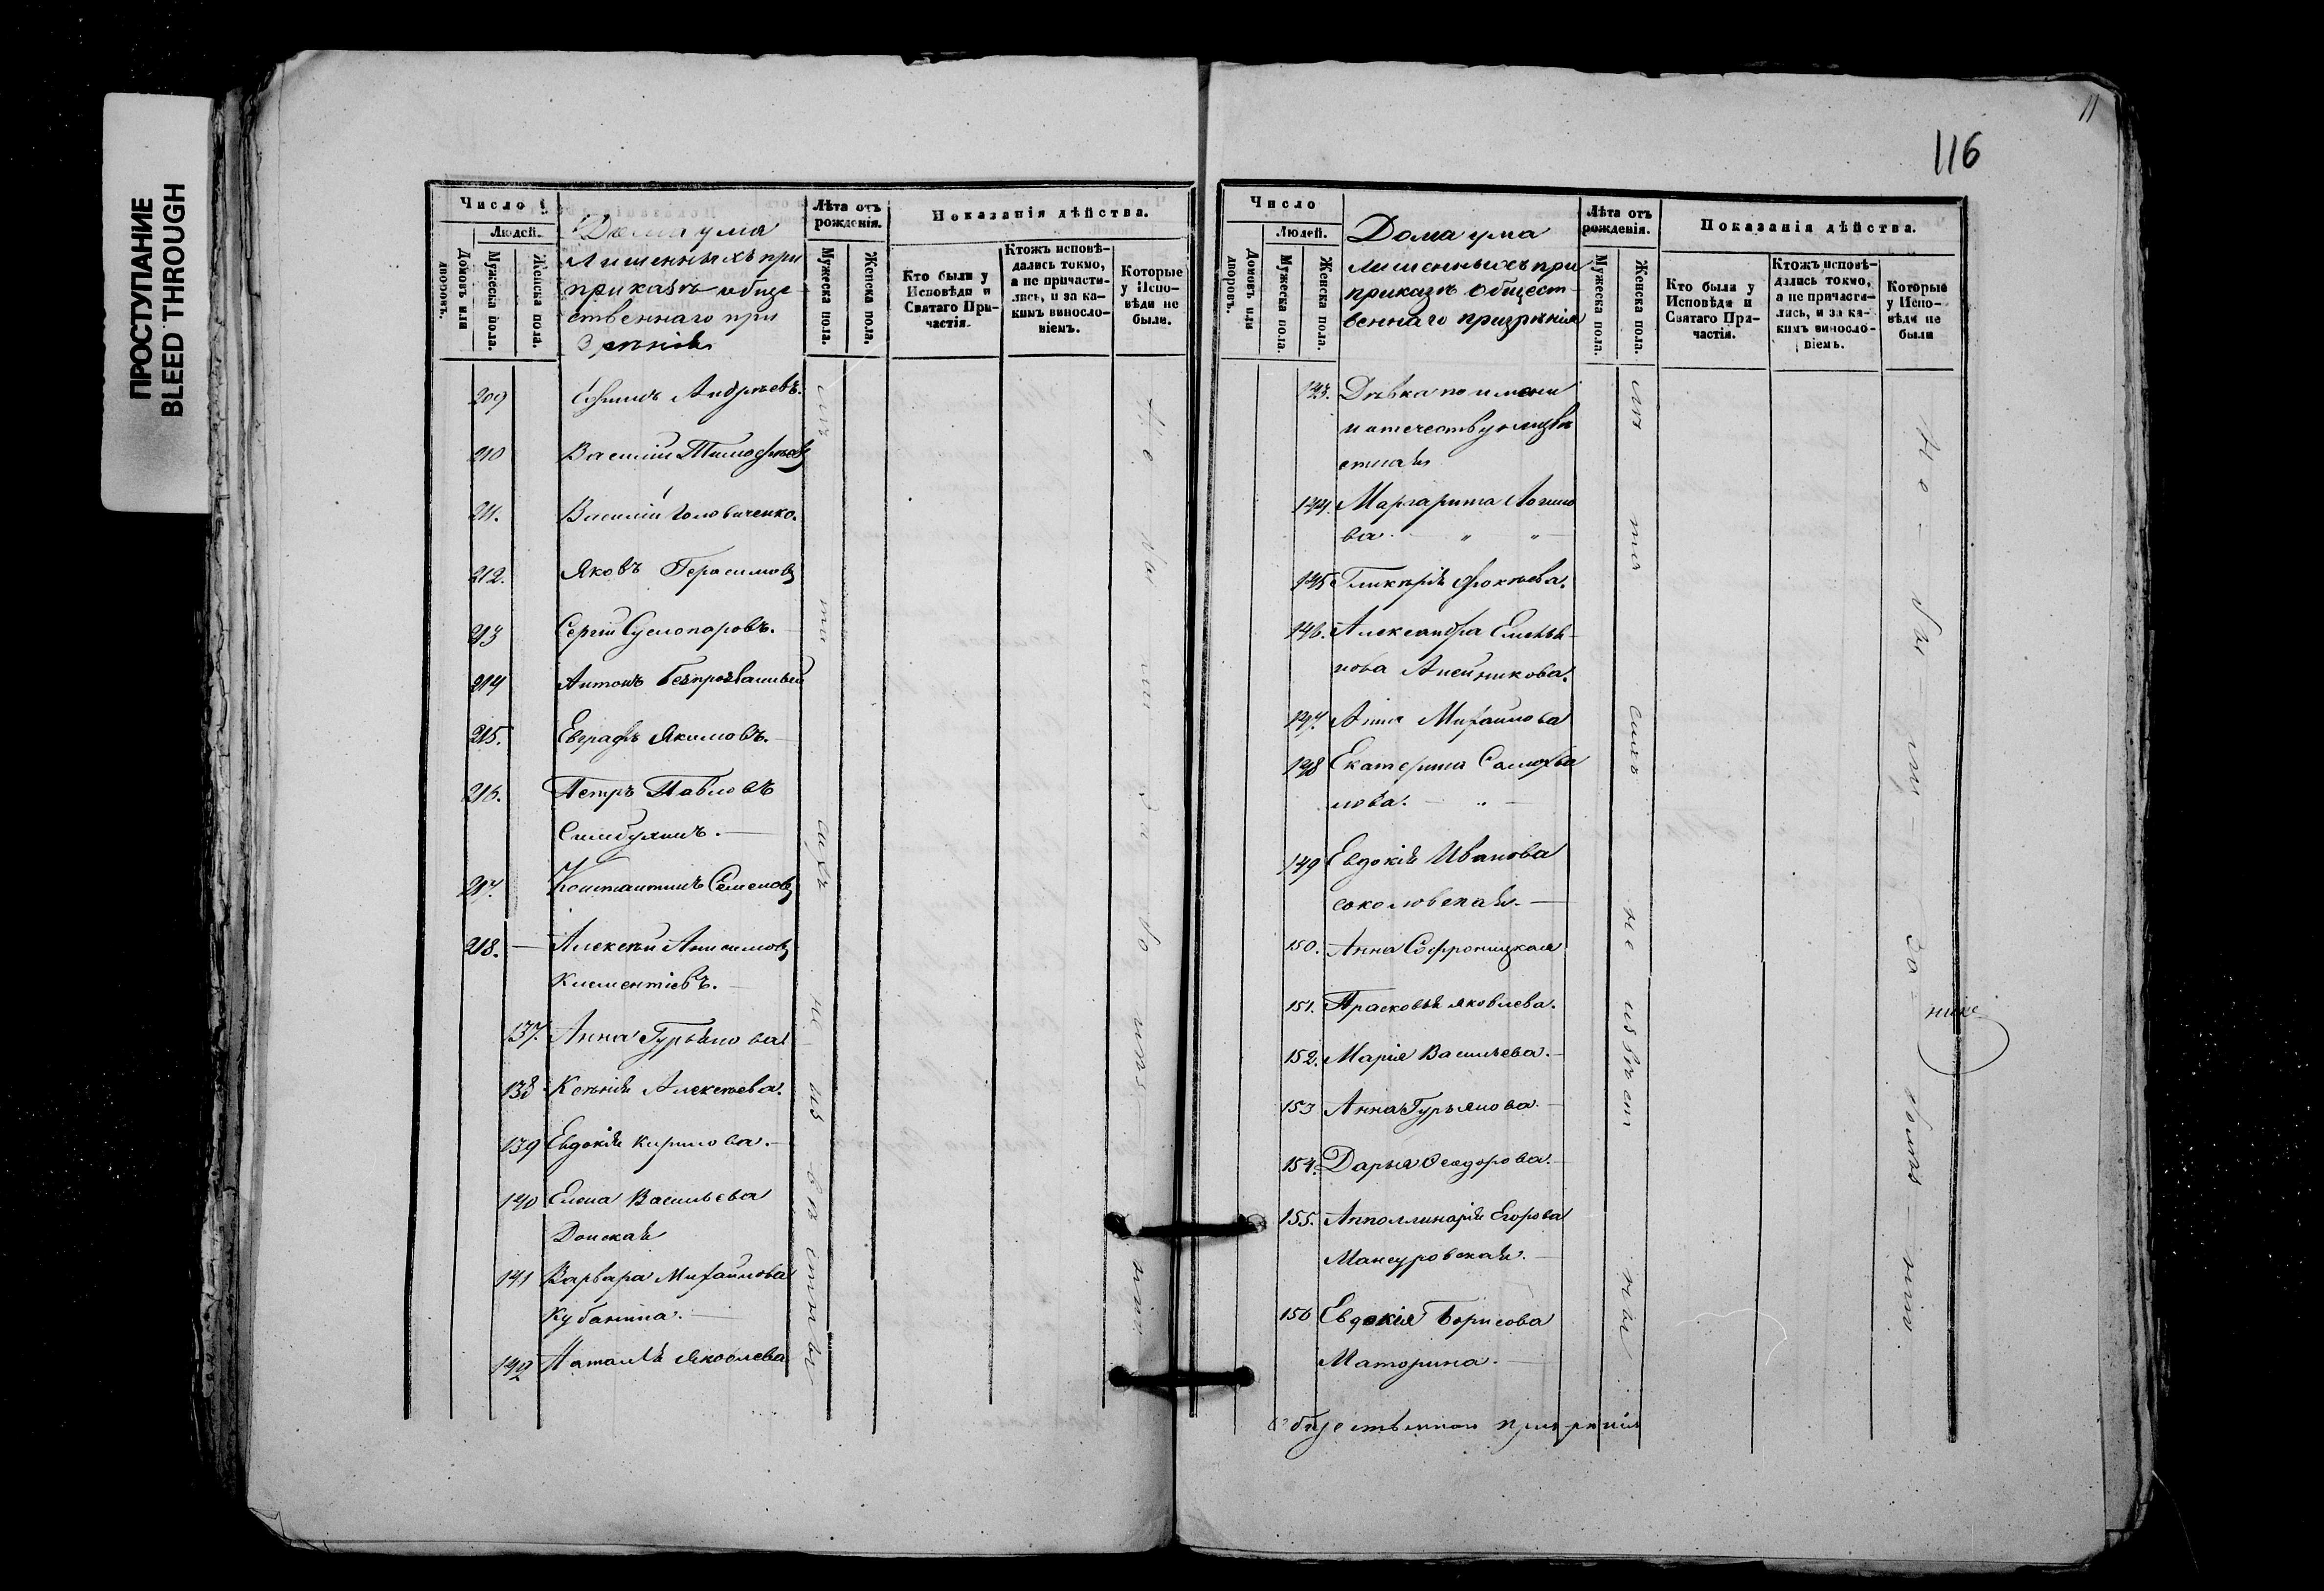 ПРОСТУПАНИЕ
BLEED THROUGH
Число
Людей.
Домовъ или дворовъ.
Мужеска пола.
Женска пола.
Дома ума
Лишенныхъ при
приказѣ обще-
ственнаго при
зрѣнія
Лѣта отъ рожденія.
Мужеска пола.
Женска пола.
Показанія дѣйства.
Кто были у
Исповѣди и
Святаго При-
частія.
Ктожъ исповѣ-
дались токмо,
а не причасти-
лись, и за ка-
кимъ винослo-
віемъ.
Которые
у Испо-
вѣди не
были.
209 Ефимъ Андреевъ.
210 Василій Тимофѣевъ
211. Василій Головаченко.
212. Яковъ Герасимовъ
213 Сергій Суслопаровъ.
214 Антонъ Безпрозванный
215. Евграфъ Якимовъ.
216. Петръ Павловъ
217. Константинъ Семеновъ
218. Алексѣй Анисимовъ
Клементіевъ.
137. Анна Гурьянова
138 Ксенія Алексѣева.
139 Евдокія Кирилова.
140 Елена Васильева
Донская
141 Варвара Михайлова
Кубанина.
142 Наталья Яковлева
лѣ та сихъ не из вѣ стны
116
11
Число
Людей.
Домовъ или дворовъ.
Мужеска пола.
Женска пола.
Дома ума
лишенныхъ при
приказѣ общест-
веннаго призрѣнія
Лѣта отъ рожденія.
Мужеска пола.
Женска пола.
Показанія дѣйства.
Кто были у
Исповѣди и
Святаго При-
частія.
Ктожъ исповѣ-
дались токмо,
а не причасти-
лись, и за ка-
кимъ винослo-
віемъ.
Которые
у Испо-
вѣди не
были
143. Дѣвка по имени
и отечеству неизвѣ
стная
144. Маргарита Логино
ва. " "
145 Гликерія Фокѣева.
146. Александра Емелья-
нова
147. Анна Михайлова
148 Екатерина Самой
лова. "
149 Евдокія Иванова
соколовская.
150. Анна Софроницкая
151. Прасковья Яковлева.
152. Марія Васильева.
153 Анна Гурьянова.
154. Дарья Ѳеодорова.
155. Апполлинарія Егорова
Мансуровская.
156 Евдокія Борисова
Маторина.
лѣ та сихъ не извѣст ны
общественнаго призрѣнія